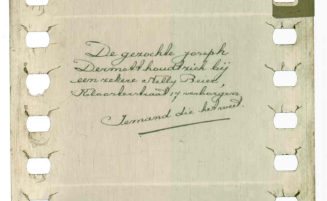 De gezochte zoseph
Dermott houdt zich bij
een zekere Nelly Beien,
Kloosterstraat 17 verborgen,
Iemand die het weet.